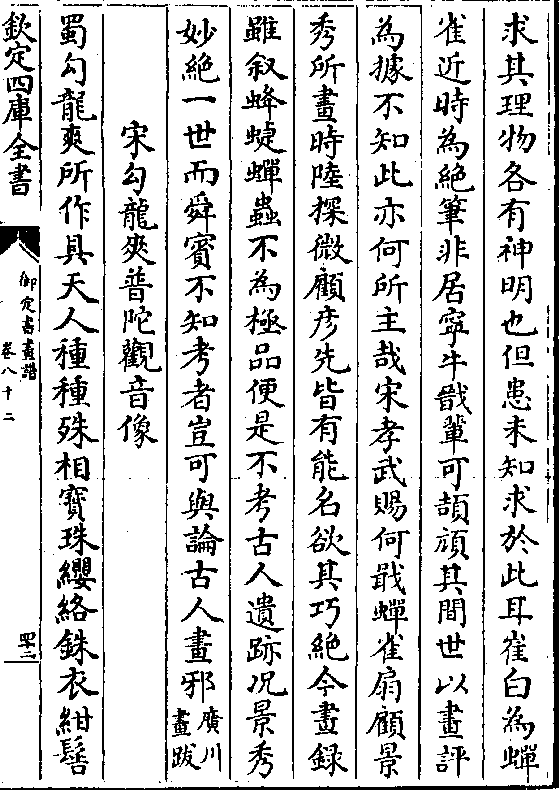 求其理物各有神明也但患未知求於此耳崔白為蟬
雀近時為絶筆非居寧牛戩輩可頡頏其間世以畫評
為據不知此亦何所主哉宋孝武賜何戢蟬雀扇顧景
秀所畫時陸探微顧彦先皆有能名欲其巧絶今畫録
雖叙蜂蜨蟬蟲不為極品便是不考古人遺跡况景秀
妙絶一世而舜賓不知考者豈可與論古人畫邪廣川
畫跋
宋勾龍爽普陀觀音像
蜀勾龍爽所作具天人種種殊相寶珠纓絡銖衣紺髻
欽定四庫全書
御定書畫譜
卷八十二